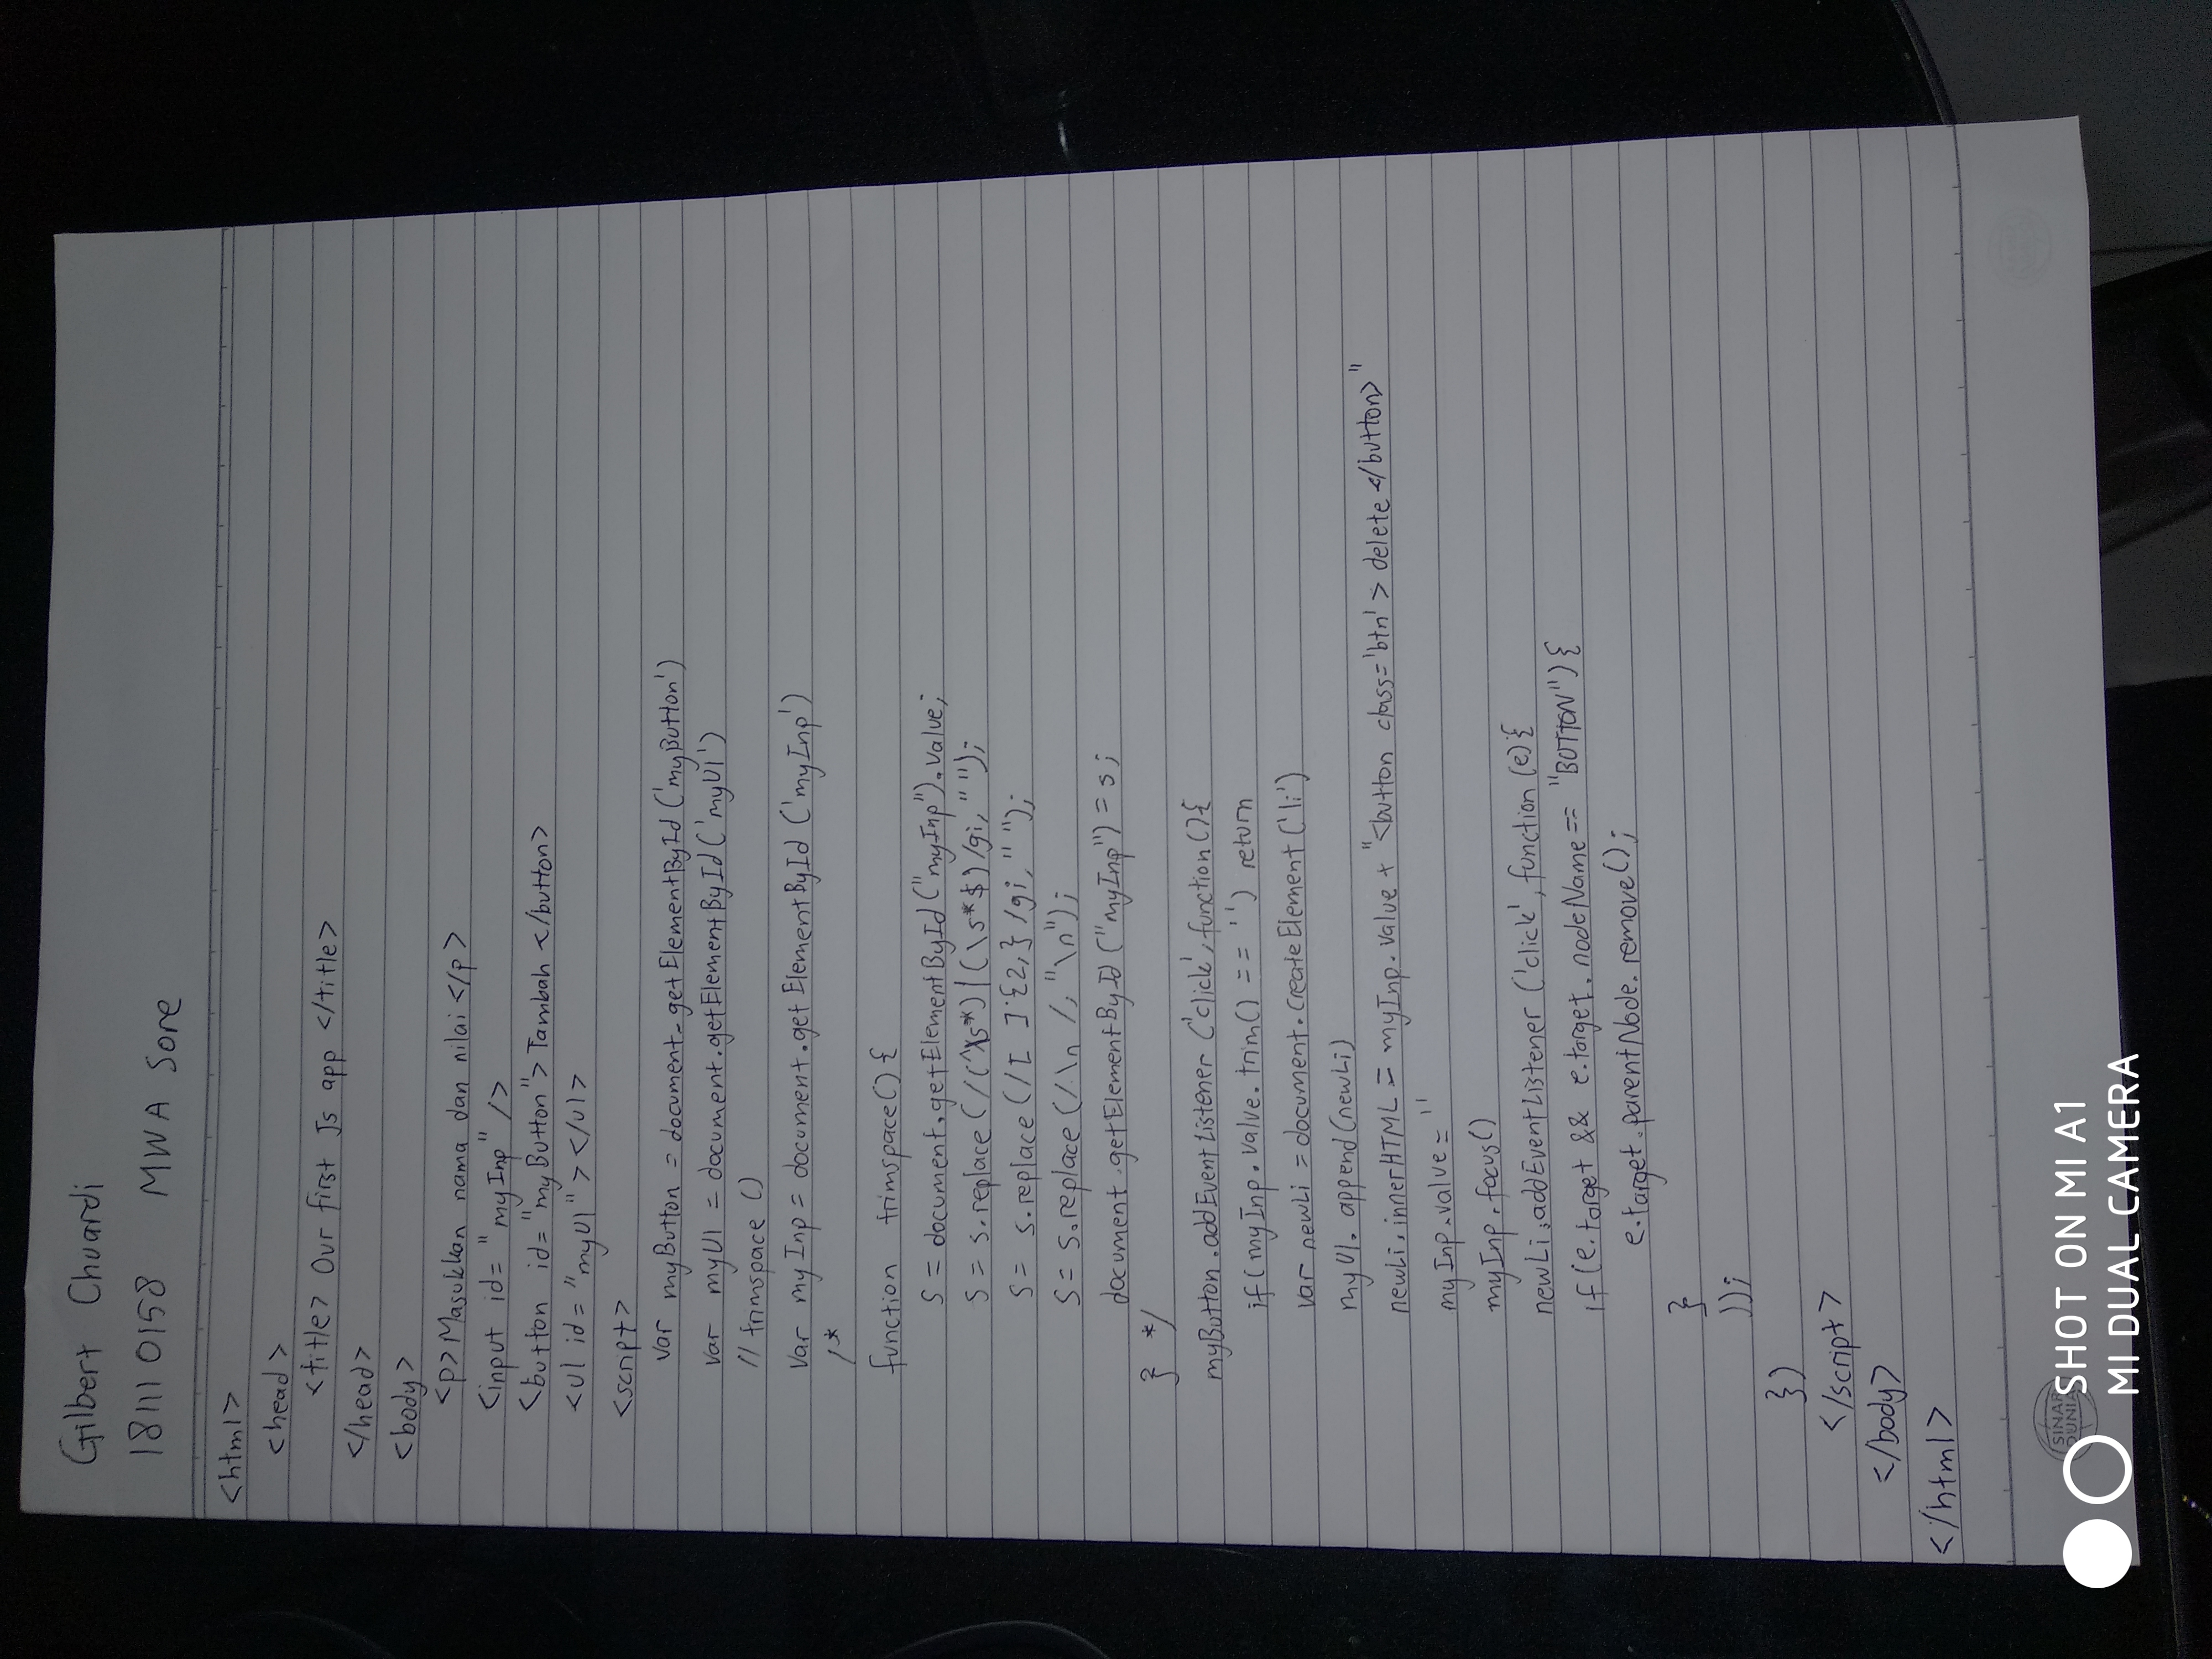 Gilbert Chuardi
181110158 MWA Sore
<html>
<head>
<title> Our first Js app </title>
</head>
<body>
<p> Masukkan nama dan nilai </p>
<input id= "myInp" />
<button id= "myButton"> Tambah </button>
<ul id= "myUl" > </ul>
<script>
var myButton = document.getElementById ('myButton')
var myUl = document.getElementById ('myUl')
// trimspace ()
var myInp = document.getElementById ('myInp')
/*
function trimspace() {
s = document.getElementById ("myInp").value;
s = s.replace (/(^\s*)|(\s*$)/gi, "");
s = s.replace (/[ ]{2,}/gi, " ");
s = s.replace (/\n /, "\n");
document.getElementById ("myInp") = s;
} */
myButton.addEventListener ('click', function () {
if (myInp.value.trim() == '') return
var newLi = document.createElement ('li')
myUl.append(newLi)
newLi.innerHTML = myInp.value + "<button class='btn' > delete </button>"
myInp.value = ''
myInp.focus()
newLi.addEventListener ('click', function (e) {
if (e.target && e.target.nodeName == "BUTTON") {
e.target.parentNode.remove();
}
));
})
</script>
</body>
</html>
SINAR
DUNIA
SHOT ON MI A1
MI DUAL CAMERA